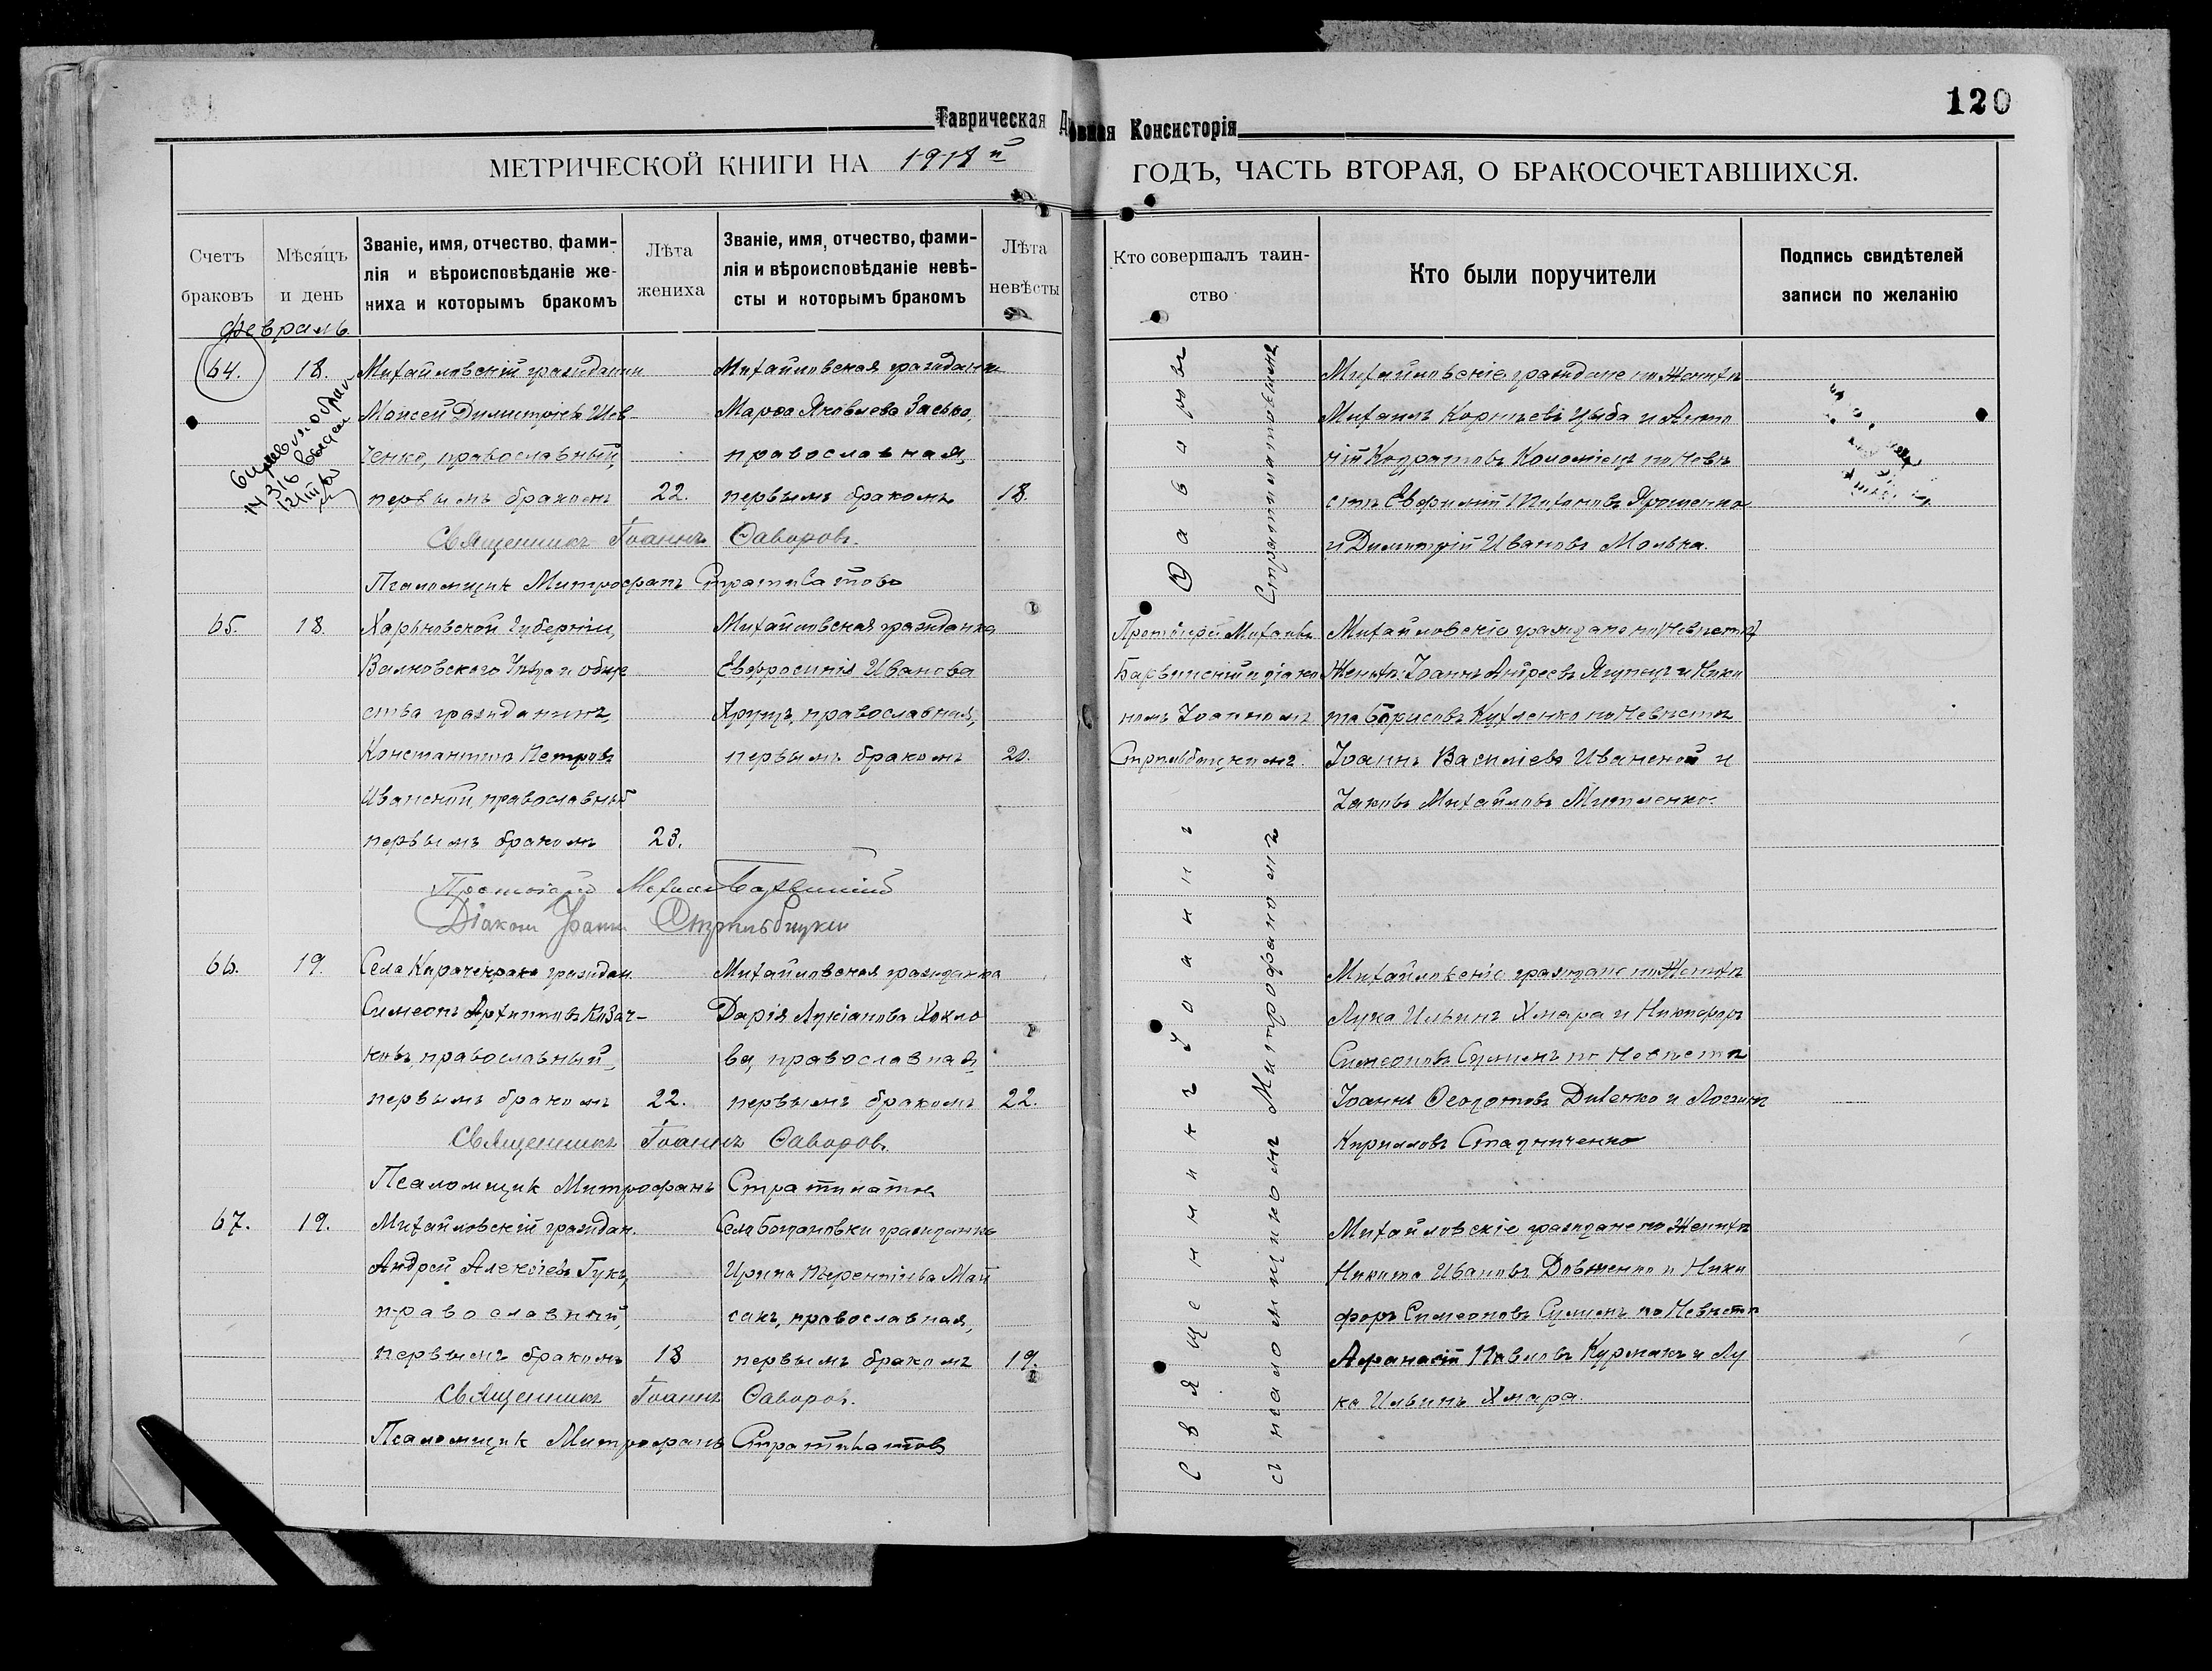 120
Таврическая Духовная Консисторія
МЕТРИЧЕСКОЙ КНИГИ НА 1918й ГОДЪ, ЧАСТЬ ВТОРАЯ, О БРАКОСОЧЕТАВШИХСЯ.
Счетъ браковъ
Мѣсяцъ и день
Званіе, имя, отчество, фами-
лія и вѣроисповѣданіе же-
ниха и которымъ бракомъ
Лѣта жениха
Званіе, имя, отчество, фами-
лія и вѣроисповѣданіе невѣ-
сты и которымъ бракомъ
Лѣта невѣсты
Кто совершалъ таин-
ство
Кто были поручители
Подпись свидѣтелей
записи по желанію
Февраль
64. 18. Михайловскій гражданин
Моисей Димитріевъ Шев
ченко, православный,
первымъ бракомъ 22.
Михайловская гражданка
Марфа Яковлева Засько,
православная,
первымъ бракомъ 18.
Священникъ Іоаннъ Ѳаворовъ.
Псаломщик Митрофанъ Стратилатовъ
Михайловскіе граждане по Женихѣ
Михаилъ Корніевъ Цыба и Анто
ній Кодратовъ Коломіецъ по Невѣ
стѣ Евфимій Ярошенко
и Димитрій Ивановъ Молька.
65. 18. Харьковской губерніи,
Валковского Уѣзда и обще
ства гражданинъ
Константинъ Петровъ
Иванской, православный
первымъ бракомъ 23.
Михайловская гражданка
Евфросинія Иванова
Ярупъ, православная,
первымъ бракомъ 20.
Протоіерей Михаилъ Барвинскій
Діаконъ Іоаннъ Стрильбицкій
Протоіерей Михаилъ
Барвинскій и діако
номъ Іоанномъ
Стрильбицкимъ.
Михайловскіе граждане по Невѣстѣ
Женихѣ: Іоаннъ Андреевъ Ягупецъ и Ники
та Борисовъ Кухленко по Невѣстѣ
Іоаннъ Василіевъ Иванской и
Іаковъ Михайловъ Митленко.
66. 19. Села Карачекрака граждан.
Симеонъ Архиповъ Казач-
ковъ, православный,
первымъ бракомъ 22.
Михайловская гражданка
Дарія Лукіанова Хохло
ва, православная
первымъ бракомъ 22.
Священникъ Іоаннъ Ѳаворовъ.
Псаломщик Митрофанъ Стратилатов
Михайловскіе граждане по Женихѣ
Лука Ильинъ Хмара и Никифоръ
Симеоновъ Сулимъ по Невѣстѣ
Іоаннъ Ѳеодотовъ Диденко и Логинъ
Кирилловъ Стадниченко
67. 19. Михайловскій граждан.
Андрей Алексіевъ Гукъ,
православный,
первымъ бракомъ 18
Села Богдановки гражданка
Ирина Терентіева Май
сакъ, православная,
первымъ бракомъ 19.
Священникъ Іоаннъ Ѳаворовъ.
Псаломщик Митрофанъ Стратилатовъ
Михайловскіе граждане по Женихѣ
Никита Ивановъ Довженко и Ники
форъ Симеоновъ Сулимъ по Невѣстѣ
Афанасій Павловъ Курмакъ и Лу
ка Ильинъ Хмара.
Священникъ Іоаннъ Ѳаворовъ
съ псаломщикомъ Митрофаномъ Стратилатовымъ